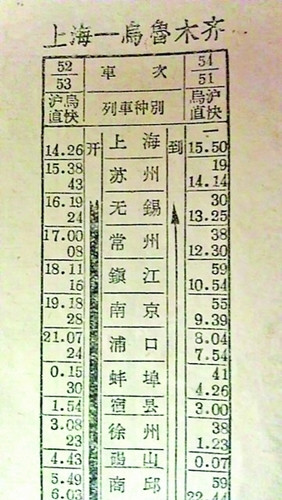 上海—烏魯木齐
52 車次 54
53 51
沪烏 列車种別 烏沪
直快 直快
开 上海 到
14.26 15.50
15.38 苏州 19
43 14.14
16.19 无錫 30
24 13.25
17.00 常州 38
08 12.30
18.11 鎮江 59
16 10.54
19.18 南京 55
28 9.39
21.07 浦口 8.04
24 7.54
0.15 蚌埠 41
30 4.26
1.54 宿县 3.00
3.08 徐州 38
23 1.23
4.43 碭山 0.07
5.49 商邱 59
6.03 22.44